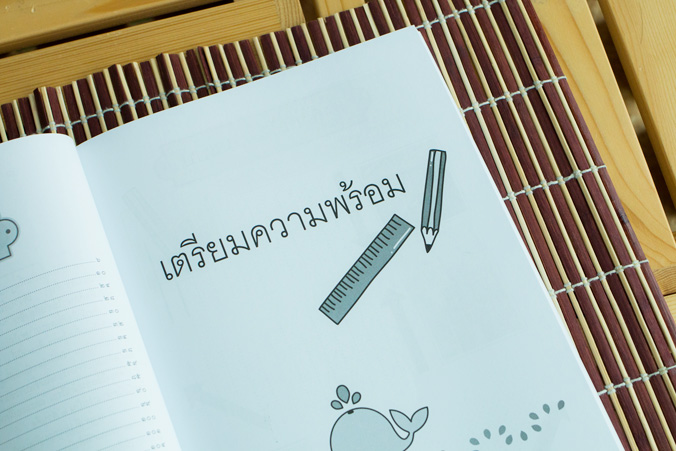 เตรียมความพร้อม